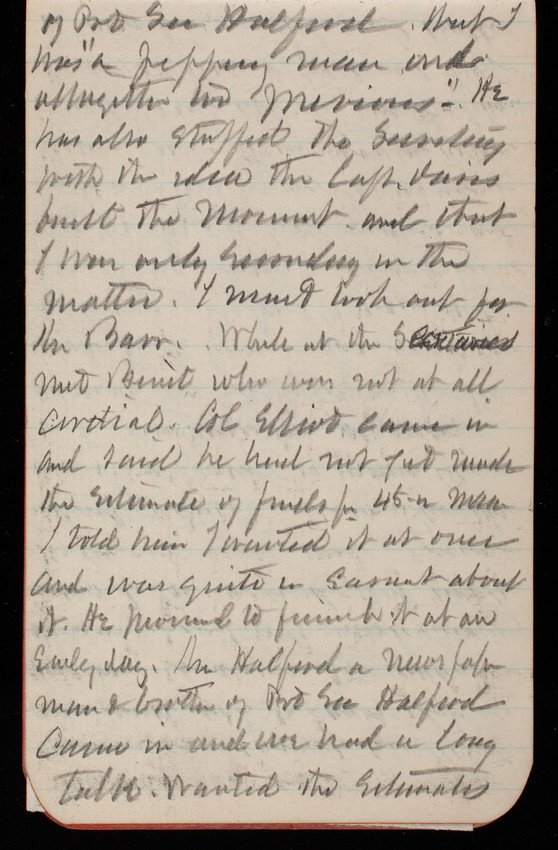 of Pvt Sec Halford. that I
was "a peppery man and
altogether too" He
has also stuffed the Secretary
with the idea the Capt. Davis
built the Monument and that
I was only secondary in the
matter. I must look out for
Mr Barr. While at the Secretaries
met Benet who was not at all
cordial. Col Elliot came in
and said he had not yet made
the Estimate of fuels for
I told him I wanted it at once
and was quite in Earnest about
it. He promised to finish it at an
Early day. Mr Halford a newspaper
man & brother of Pvt Sec Halford
Came in and we had a long
talk. Wanted the Estimates